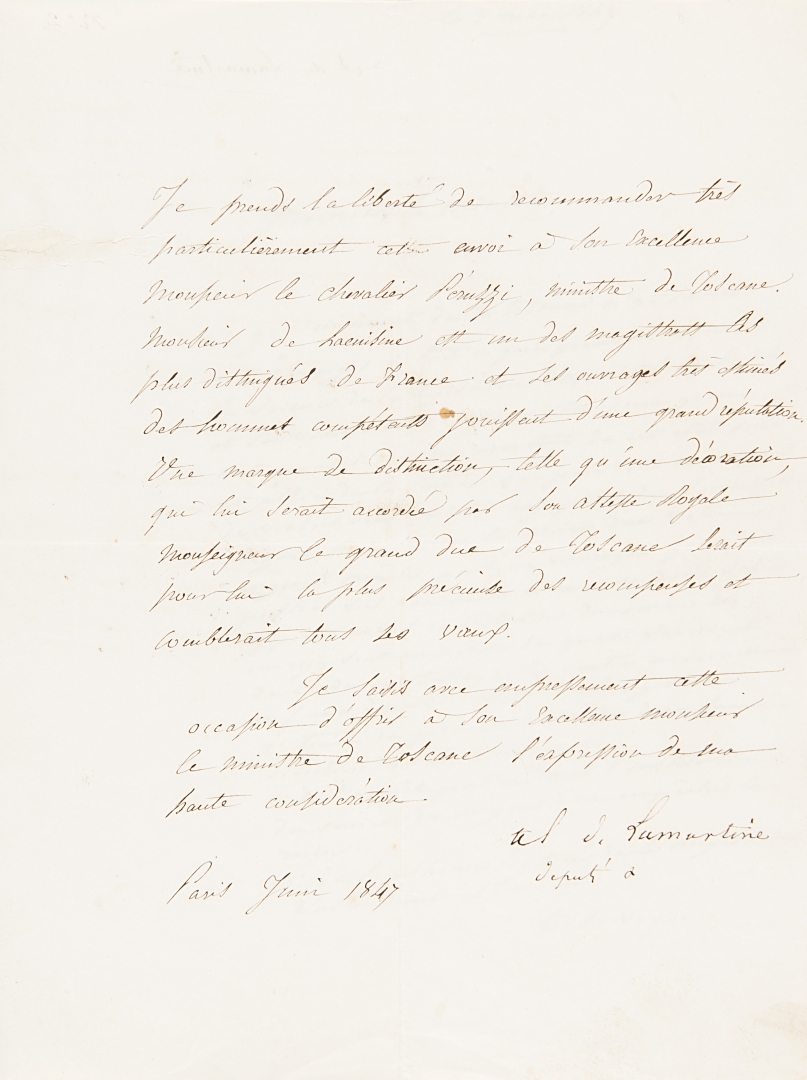 Je prends la liberté de recommander très
particulièrement cette envoi à Son Excellence
Monsieur le chevalier Péruzzi, ministre de Toscane.
Monsieur de Lacuisine est un des magistrats les
plus distingués de France et ses ouvrages très estimés
des hommes compétants jouissent d'une grand réputation.
Une marque de distinction, telle qu'une décoration,
qui lui serait accordée par Son Altesse Royale
Monseigneur le grand duc de Toscane serait
pour lui la plus précieuse des recompenses et
comblerait tous ses vœux.
Je saisis avec empressement cette
occasion d'offrir à Son Excellence monsieur
le ministre de Toscane l'expression de ma
haute considération.
Al de Lamartine
député
Paris Juin 1847